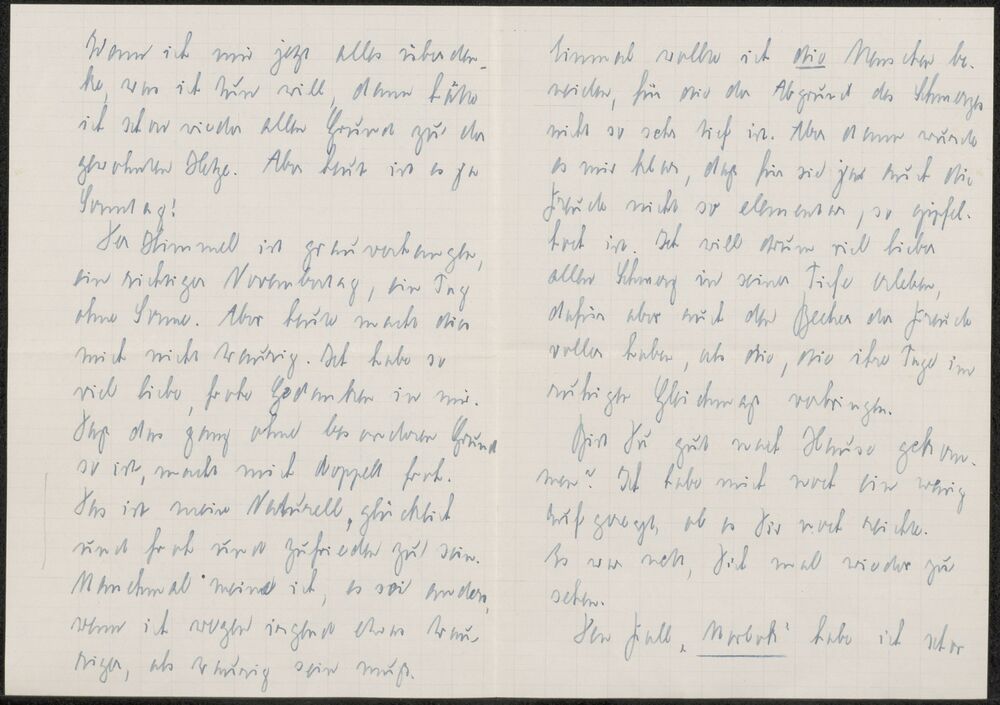 Wenn ich mir jetzt alles überden-
ke, was ich tun will, dann hätte
ich schon wieder allen Grund zu der
gewohnten Hetze. Aber heut ist es ja
Sonntag!
Der Himmel ist grauverhangen,
ein richtiger Novembertag, ein Tag
ohne Sonne. Aber heute macht dies
mich nicht traurig. Ich habe so
viel liebe, frohe Gedanken in mir.
Daß das ganz ohne besonderen Grund
so ist, macht mich doppelt froh.
Das ist meine Naturell, glücklich
und froh und zufrieden zu sein.
Manchmal meine ich, es sei anders,
wenn ich wegen irgend etwas trau-
riger, als traurig sein muß.
Einmal wollte ich die Menschen be-
neiden, für die der Abgrund des Schmerzes
nicht so sehr tief ist. Aber dann wurde
es mir klar, daß für sie ja auch die
Freude nicht so elementar, so gipfel-
hoch ist. Ich will drum viel lieber
allen Schmerz in seiner Tiefe erleben,
dafür aber auch den Becher der Freude
voller haben, als die, die ihre Tage im
ruhigen Gleichmaß verbringen.
Bist Du gut nach Hause gekom-
men? Ich habe mich noch ein wenig
aufgeregt, ob es Dir noch reichte.
Es war nett, Dich mal wieder zu
sehen.
Den Fall habe ich schon